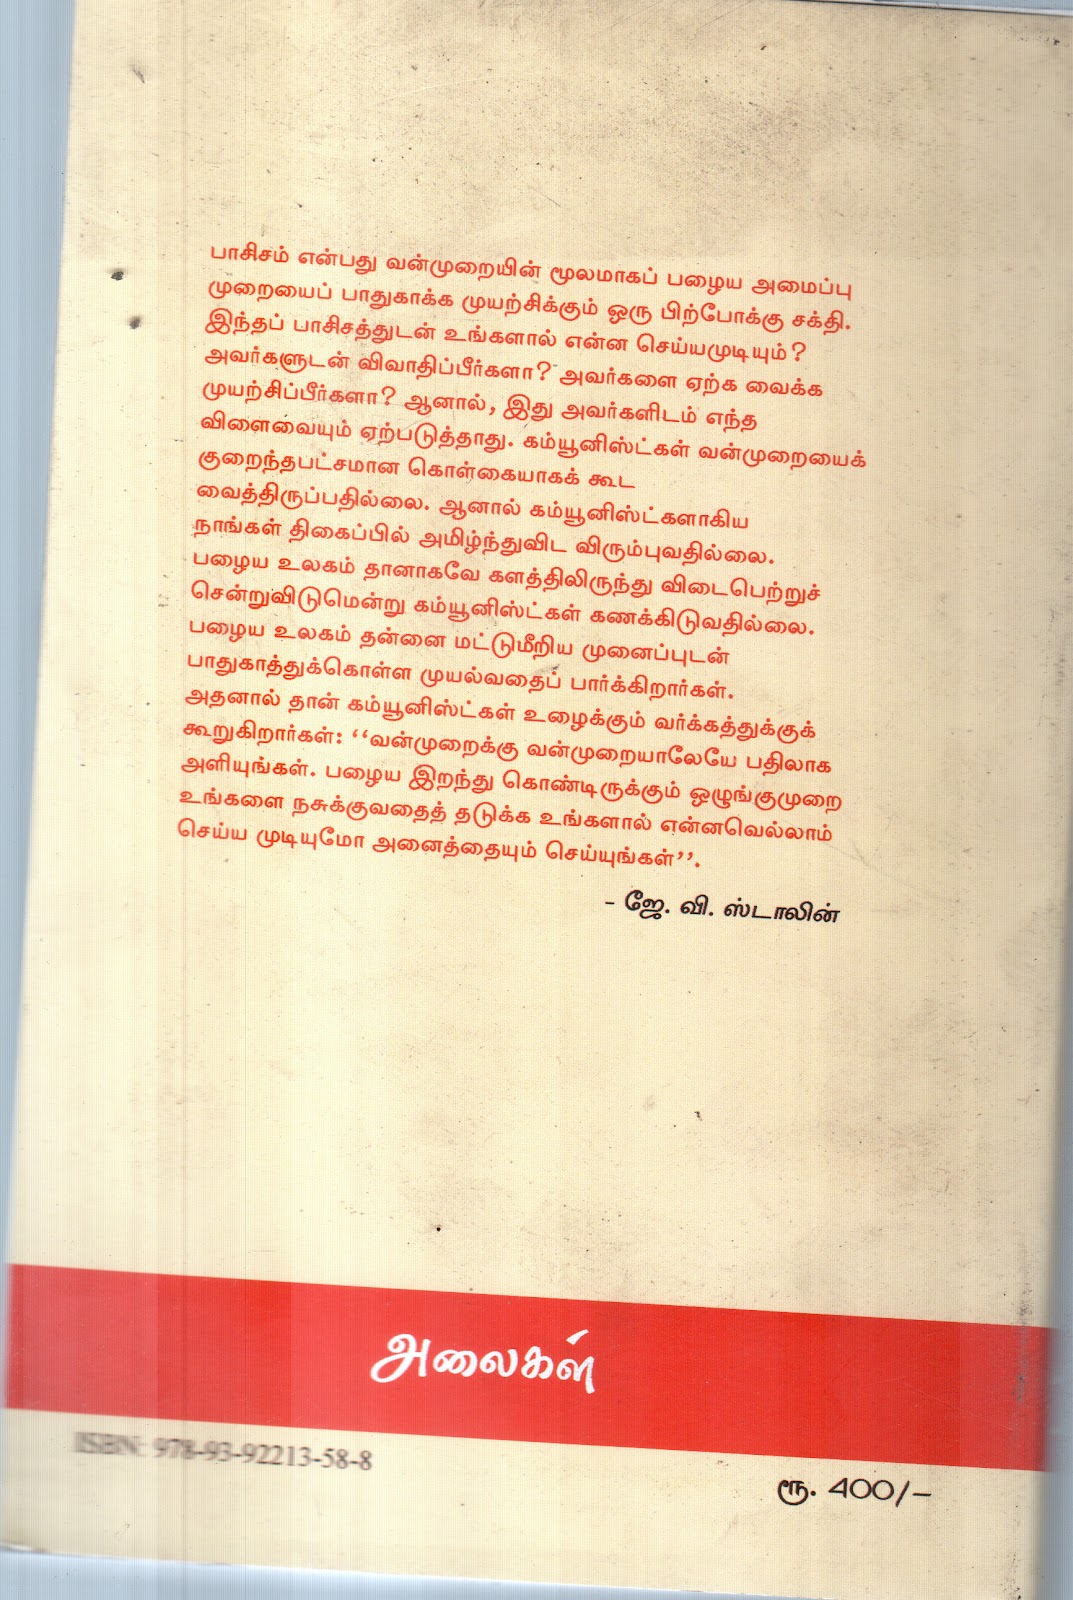 பாசிசம் என்பது வன்முறையின் மூலமாகப் பழைய அமைப்பு
முறையைப் பாதுகாக்க முயற்சிக்கும் ஒரு பிற்போக்கு சக்தி.
இந்தப் பாசிசத்துடன் உங்களால் என்ன செய்யமுடியும்?
அவர்களுடன் விவாதிப்பீர்களா? அவர்களை ஏற்க வைக்க
முயற்சிப்பீர்களா? ஆனால், இது அவர்களிடம் எந்த
விளைவையும் ஏற்படுத்தாது. கம்யூனிஸ்ட்கள் வன்முறையைக்
குறைந்தபட்சமான கொள்கையாகக் கூட
வைத்திருப்பதில்லை. ஆனால் கம்யூனிஸ்ட்களாகிய
நாங்கள் திகைப்பில் அமிழ்ந்துவிட விரும்புவதில்லை.
பழைய உலகம் தானாகவே களத்திலிருந்து விடைபெற்றுச்
சென்றுவிடுமென்று கம்யூனிஸ்ட்கள் கணக்கிடுவதில்லை.
பழைய உலகம் தன்னை மட்டுமீறிய முனைப்புடன்
பாதுகாத்துக்கொள்ள முயல்வதைப் பார்க்கிறார்கள்.
அதனால் தான் கம்யூனிஸ்ட்கள் உழைக்கும் வர்க்கத்துக்குக்
கூறுகிறார்கள்: ‘‘வன்முறைக்கு வன்முறையாலேயே பதிலாக
அளியுங்கள். பழைய இறந்து கொண்டிருக்கும் ஒழுங்குமுறை
உங்களை நசுக்குவதைத் தடுக்க உங்களால் என்னவெல்லாம்
செய்ய முடியுமோ அனைத்தையும் செய்யுங்கள்’’.
- ஜே. வி. ஸ்டாலின்
அலைகள்
ISBN: 978-93-92213-58-8
ரூ. 400/-